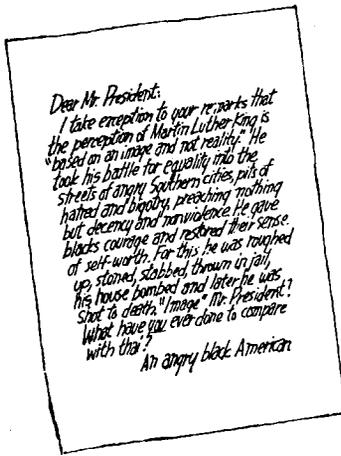 Dear Mr. President:
I take exception to your remarks that
the perception of Martin Luther King is
"based on an image and not reality." He
took his battle for equality into the
streets of angry Southern cities, pits of
hatred and bigotry, preaching nothing
but decency and nonviolence. He gave
blacks courage and restored their sense
of self-worth. For this he was roughed
up, stoned, stabbed, thrown in jail,
his house bombed and later he was
shot to death. "Image" Mr. President?
What have you ever done to compare
with that?
An angry black American